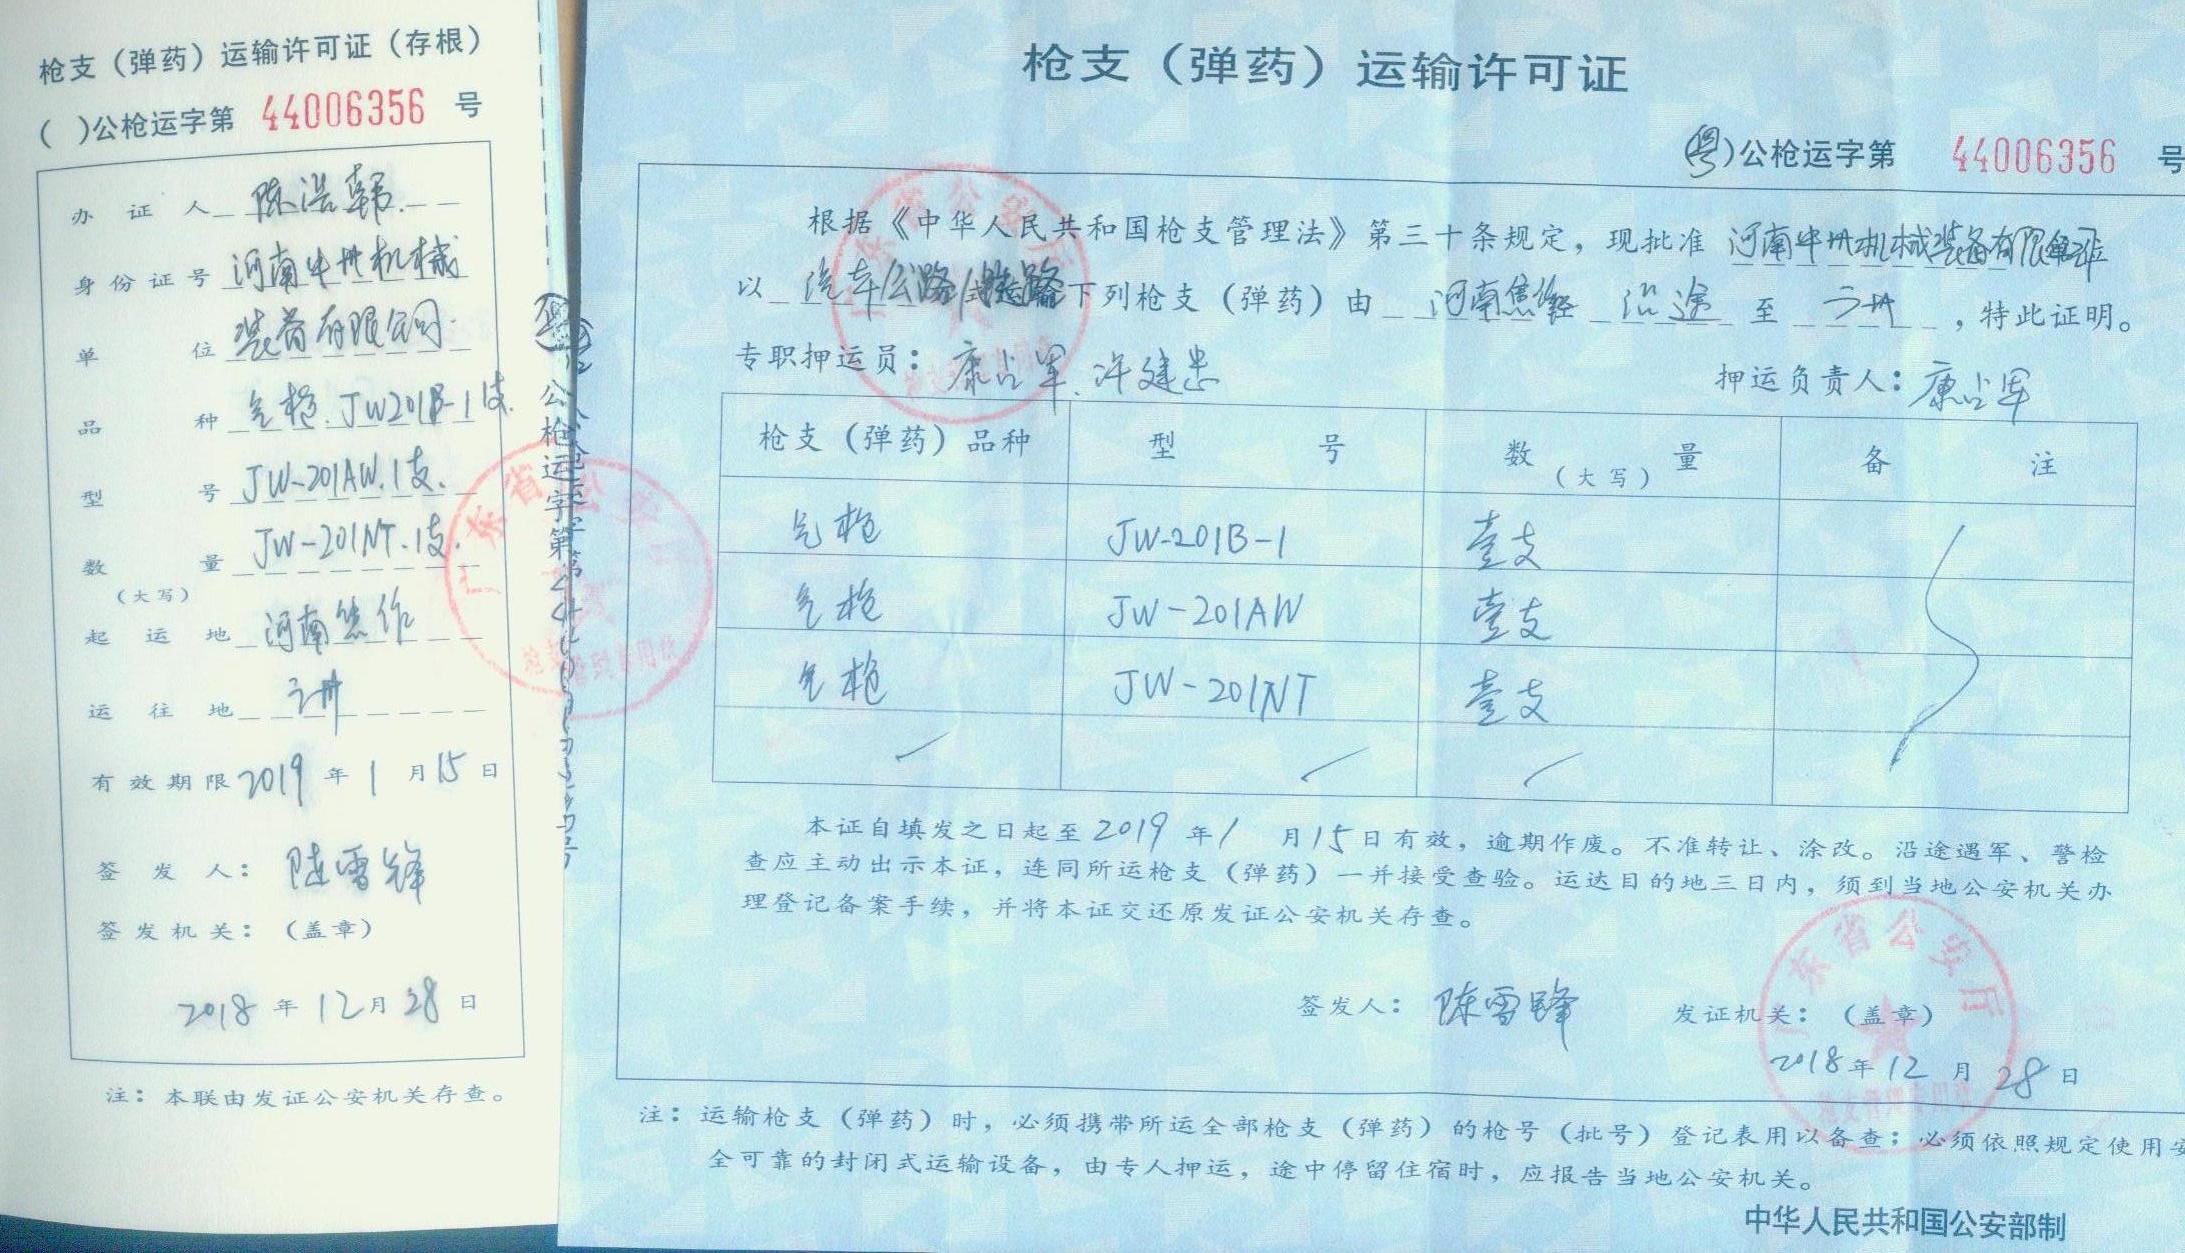 枪支（弹药）运输许可证（存根）
( )公枪运字第 44006356 号
办证人 陈浩韩
身份证号 河南中州机械
单位 装备有限公司
品种 气枪.JW201B-1支.
型号 JW-201AW.1支.
数量 JW-201NT.1支.
（大写）
起运地 河南焦作
运往地
有效期限 2019 年 1 月 15 日
签发人： 陈雪锋
签发机关：（盖章）
2018 年 12 月 28 日
注：本联由发证公安机关存查。
公枪运字第
广东省公安厅
枪支管理专用章
枪支（弹药）运输许可证
(粤)公枪运字第 44006356 号
根据《中华人民共和国枪支管理法》第三十条规定，现批准 河南中州机械装备有限公司
以 汽车公路 下列枪支（弹药）由 河南焦作 沿途 至 ，特此证明。
专职押运员： 康占军、许建忠 押运负责人： 康占军
枪支（弹药）品种 型号 数量（大写） 备注
气枪 JW-201B-1 壹支
气枪 JW-201AW 壹支
气枪 JW-201NT 壹支
本证自填发之日起至 2019 年 1 月 15 日有效，逾期作废。不准转让、涂改。沿途遇军、警检
查应主动出示本证，连同所运枪支（弹药）一并接受查验。运达目的地三日内，须到当地公安机关办
理登记备案手续，并将本证交还原发证公安机关存查。
签发人： 陈雪锋 发证机关：（盖章）
广东省公安厅
2018 年 12 月 28 日
注：运输枪支（弹药）时，必须携带所运全部枪支（弹药）的枪号（批号）登记表用以备查；必须依照规定使用安
全可靠的封闭式运输设备，由专人押运，途中停留住宿时，应报告当地公安机关。
中华人民共和国公安部制